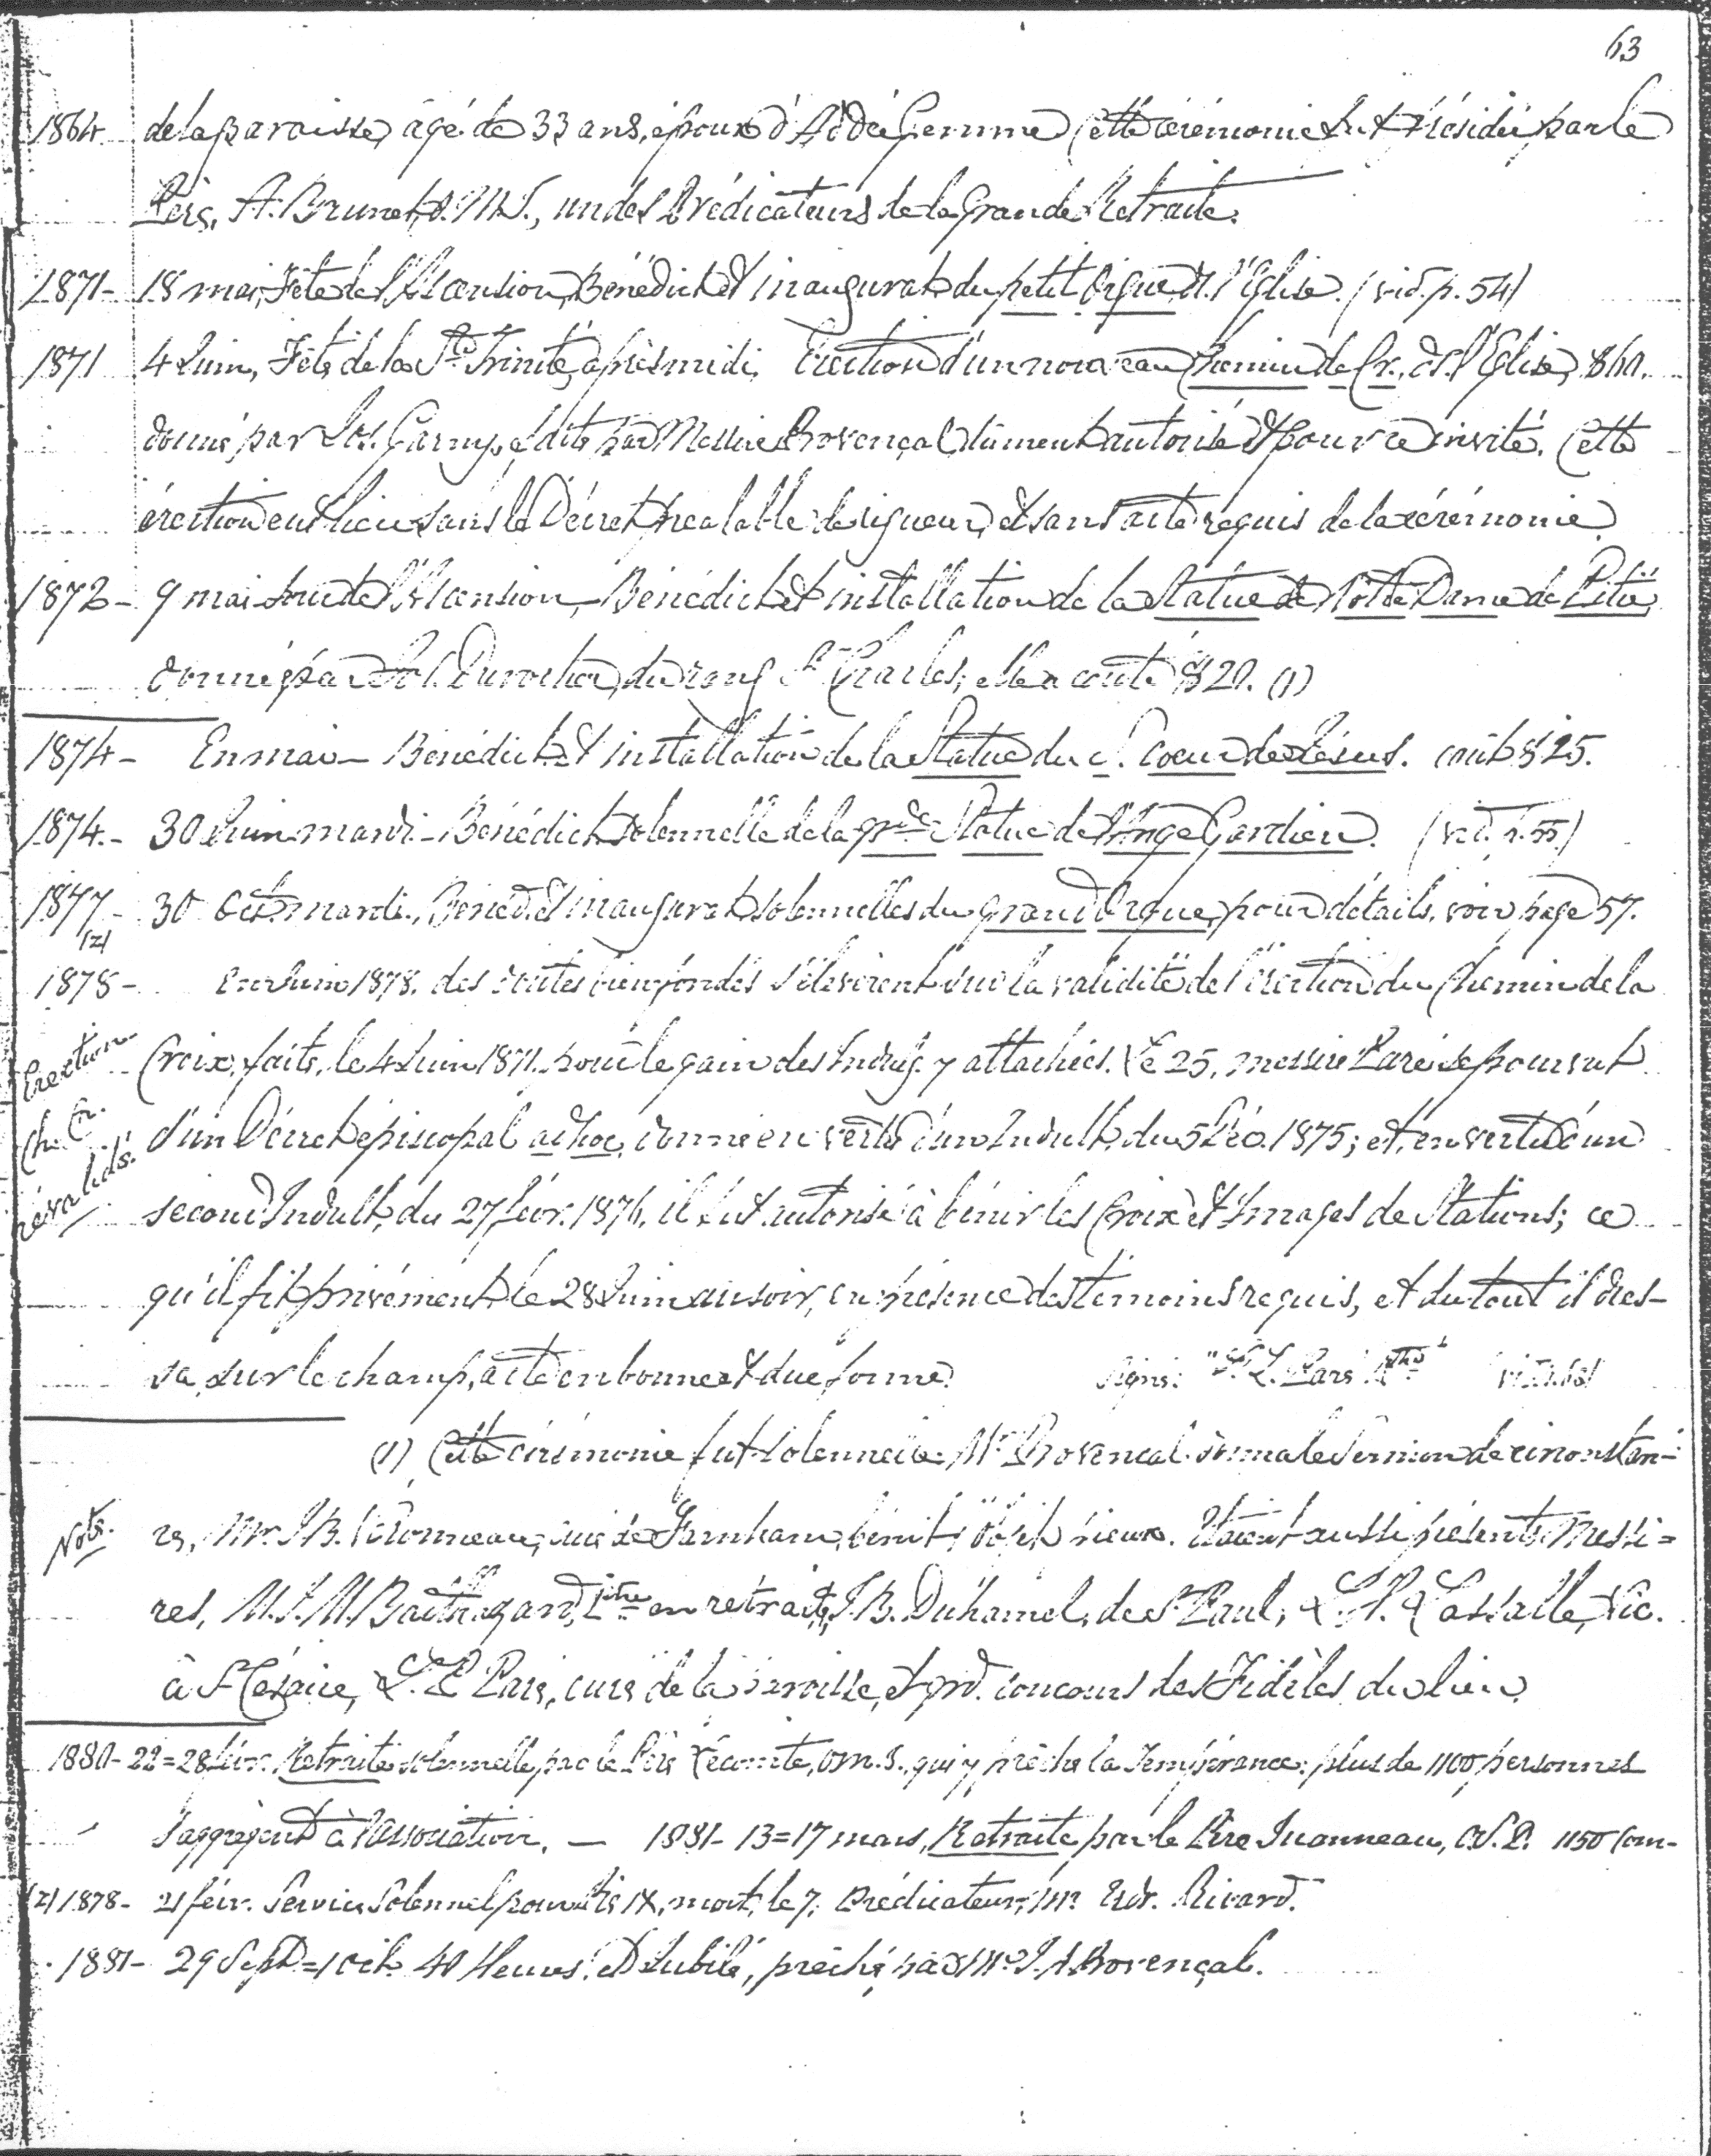 63
1864 de la paroisse, âgé de 33 ans, époux d'Adée Gemme. Cette cérémonie fut présidée par le
Père A. Brunet, O.M.I., un des Prédicateurs de la Grande Retraite.
1871 - 18 mai, Fête de l'Ascension, Bénédict. et inaugurat. du petit Orgue d. l'Eglise. (vid. p. 54)
1871 4 Juin, Fête de la Ste Trinité, après midi, Erection d'un nouveau Chemin de Cr., ds. l'Eglise, $60.
donné par Jos. Garny, & dite par Messire Provençal dûment autorisé & pour ce invité. Cette
érection eut lieu sans le Décret préalable de rigueur, et sans acte requis de la cérémonie.
1872 - 9 mai Jour de l'Ascension, Bénédict. et installation de la Statue de Notre Dame de Pitié,
donnée par Durocher, du rang St Charles; elle a coûté $20. (1)
1874 - En mai - Bénédict. et installation de la Statue du S. Coeur de Jésus. coût $25.
1874. - 30 Juin mardi - Bénédict. solennelle de la grde Statue de l'Ange Gardien. (vid. p. 55.)
1877 - 30 Oct. mardi, Bénéd. et inaugurat. solennelles du grand Orgue, pour détails, voir page 57.
(2)
1878 - En Juin 1878. des doutes bien fondés s'élevèrent sur la validité de l'érection du Chemin de la
Erection Croix, faite, le 4 Juin 1871. pour le gain des Indulg. y attachées. Le 25, messire Paré se pourvut
Ch. Cr. d'un Décret épiscopal ad hoc, donné en vertu d'un Indult, du 5 Déc. 1875; et, en vertu d'un
révalidé. second Indult, du 27 févr. 1876, il fut autorisé à bénir les Croix et Images de Stations; ce
qu'il fit privément, le 28 Juin au soir, en présence des témoins requis, et du tout il dres-
sa, sur le champ, acte en bonne et due forme. Signé: "L. Paré Ptre"
(1) Cette cérémonie fut solennelle: Mr Provençal donna le Sermon de circonstan-
Note. ce, Mr. J.B. Véronneau, curé de Farnham, bénit l'objet pieux. Etaient aussi présents Messi=
res, Ptre en retraite, J.B. Duhamel, de St Paul, L. P. Lassalle, Vic.
à St Césaire, & L. Paré, curé de la paroisse, et grd. concours des Fidèles du lieu.
1880 - 22 = 28 févr. Retraite solennelle, par le Père Lecomte, O.M.I., qui y prêche la Tempérance: plus de 1100 personnes
s'aggrègent à l'association. — 1881 - 13 = 17 mars, Retraite par le Père Juonneau, O.S.D. 1150 com-
(2) 1878 - 21 févr. Service Solennel pour Pie IX, mort, le 7. Prédicateur, Mr Edr. Rivard.
1881 - 29 Sept. = 1 Oct. 40 Heures. et Jubilé, prêché par Mr J. A. Provençal.